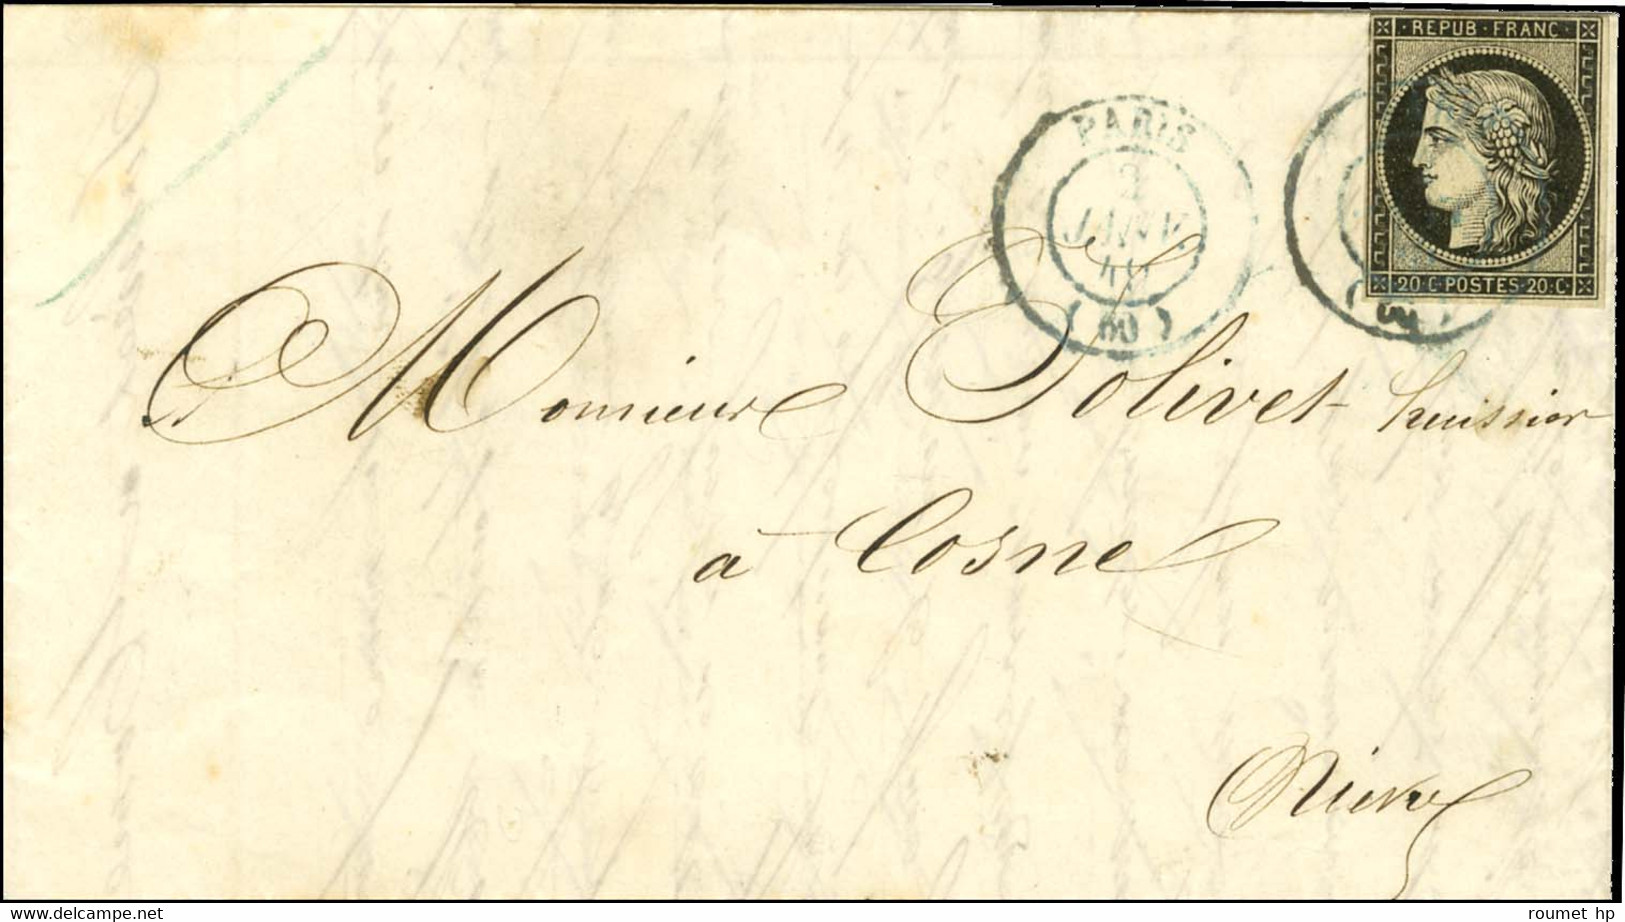 REPUB · FRANC ·
20 · C · POSTES · 20 · C ·
PARIS
2
JANV.
49
(60)
(60)
Monsieur Jolivet huissier
à Cosne
Nièvre
www.delcampe.net
roumet_hp